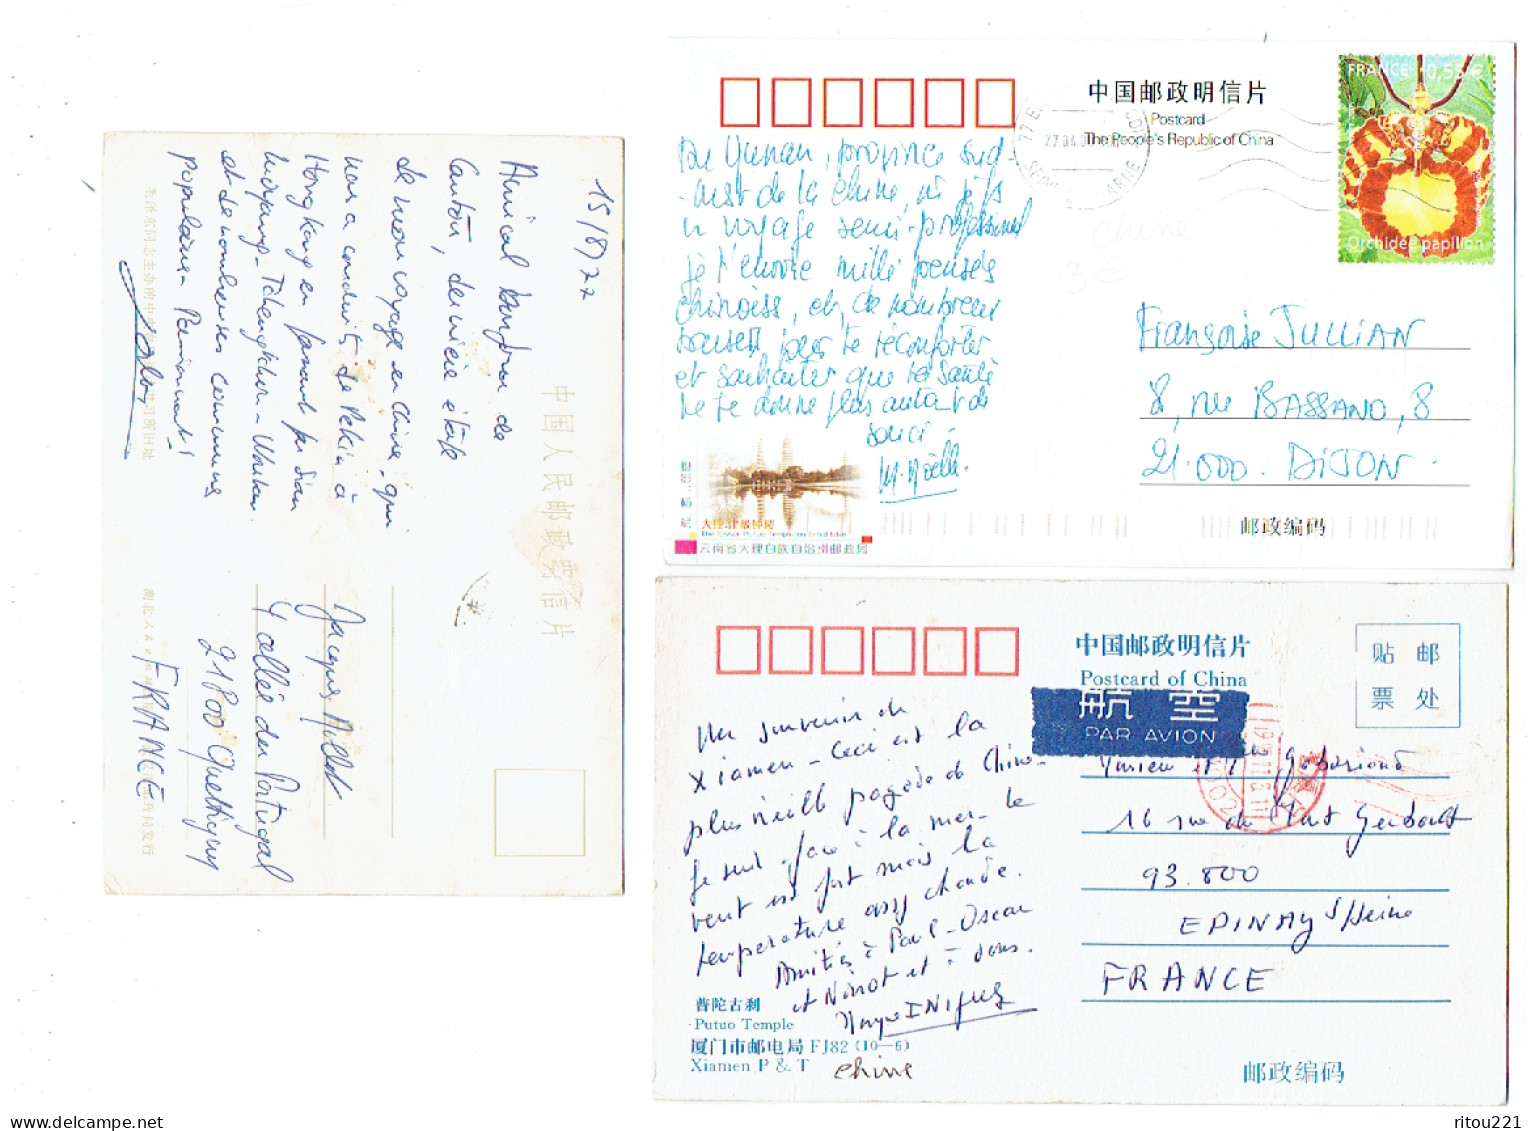 15/8/77
Amical bonjour de
Canton, dernière étape
de mon voyage en Chine, qui
nous a conduits de Pékin à
Hongkong en passant par Sian
Loyang - Tchengtcheou - Wuhan
et de nombreuses communes
populaires. Passionnant!
中国人民邮政明信片
Jacques Millot
4 allée du Portugal
21800 Quetigny
FRANCE
中国邮政明信片
Postcard
The People's Republic of China
FRANCE 0,53 €
Orchidée papillon
27.04.0
Chine
3 €
Du Yunan, province sud
-ouest de la Chine, où je fs
un voyage semi-professionnel
je t'envoie mille pensées
chinoises, et de nombreux
baisers pour te réconforter
et souhaiter que ta santé
ne te donne plus autant de
souci -
M. Noëlle.
Françoise JULLIAN
8, rue BASSANO, 8
21.000. DIJON.
云南省大理白族自治州邮政局
邮政编码
中国邮政明信片
Postcard of China
贴 邮
票 处
航空
PAR AVION
Un souvenir de
Xiamen - Ceci est la
plus vieille pagode de Chine -
Je suis face à la mer - le
vent est fort mais la
température assez chaude.
Amitiés à Paul-Oscar
et Ninot et à vous.
16 rue du
93.800
EPINAY s/Seine
FRANCE
普陀古刹
Putuo Temple
厦门市邮电局 FJ82 (10—6)
Xiamen P & T
Chine
邮政编码
ritou221